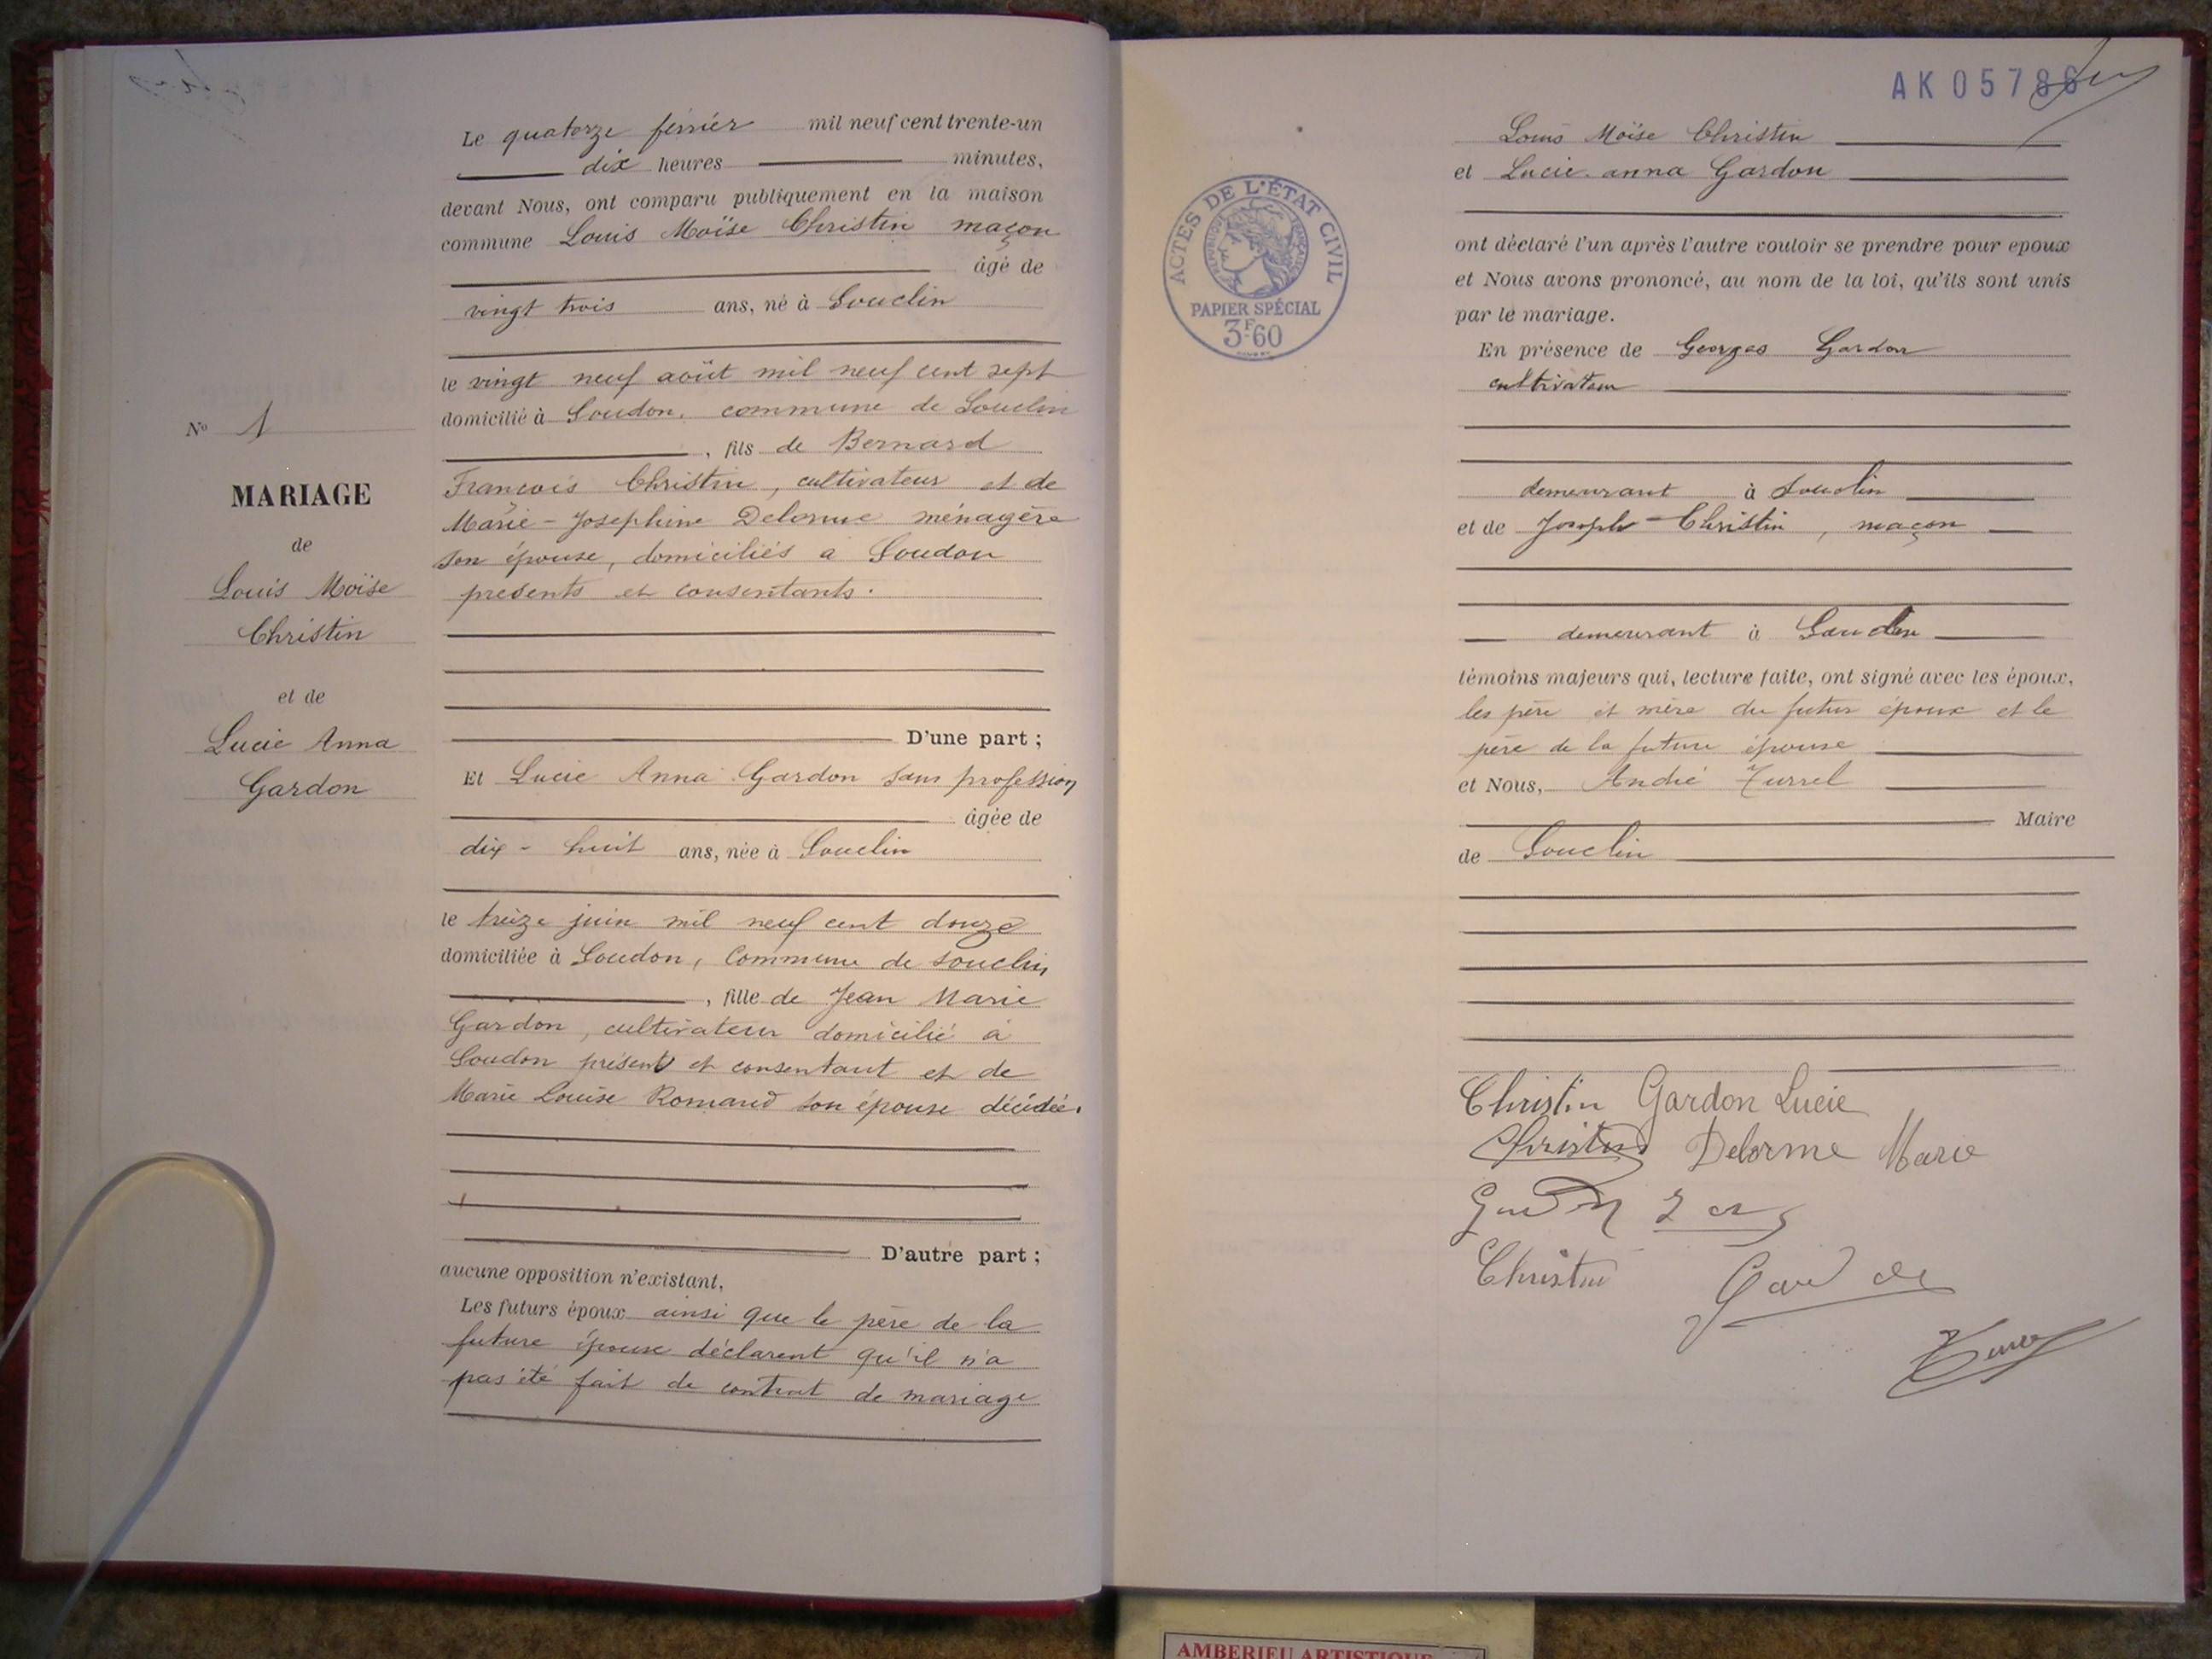 Le quatorze février mil neuf cent trente-un
dix heures minutes,
devant Nous, ont comparu publiquement en la maison
commune Louis Moïse Christin maçon
âgé de
vingt trois ans, né à Souclin
le vingt neuf août mil neuf cent sept
domicilié à Soudon, commune de Souclin
, fils de Bernard
François Christin, cultivateur et de
Marie-Josephine Delorme ménagère
son épouse, domiciliés à Soudon
présents et consentants.
D'une part ;
Et Lucie Anna Gardon sans profession
âgée de
dix-huit ans, née à Souclin
le treize juin mil neuf cent douze
domiciliée à Soudon, Commune de Souclin
, fille de Jean Marie
Gardon, cultivateur domicilié à
Soudon présent et consentant et de
Marie Louise Romand son épouse décédée.
D'autre part ;
aucune opposition n'existant,
Les futurs époux ainsi que le père de la
future épouse déclarent qu'il n'a
pas été fait de contrat de mariage
No 1
MARIAGE
de
Louis Moïse
Christin
et de
Lucie Anna
Gardon
AK 05786
Louis Moïse Christin
et Lucie anna Gardon
ont déclaré l'un après l'autre vouloir se prendre pour epoux
et Nous avons prononcé, au nom de la loi, qu'ils sont unis
par le mariage.
En présence de Georges Gardon
cultivateur
demeurant à Souclin
et de Joseph Christin, maçon
demeurant à Souclin
témoins majeurs qui, lecture faite, ont signé avec les époux,
les père et mère du futur époux et le
père de la future épouse
et Nous, André Turrel
Maire
de Souclin
ACTES DE L'ÉTAT CIVIL
RÉPUBLIQUE FRANÇAISE
PAPIER SPÉCIAL
3F60
Christin Gardon Lucie
Christin Delorme Marie
Christin
AMBERIEU ARTISTIQUE